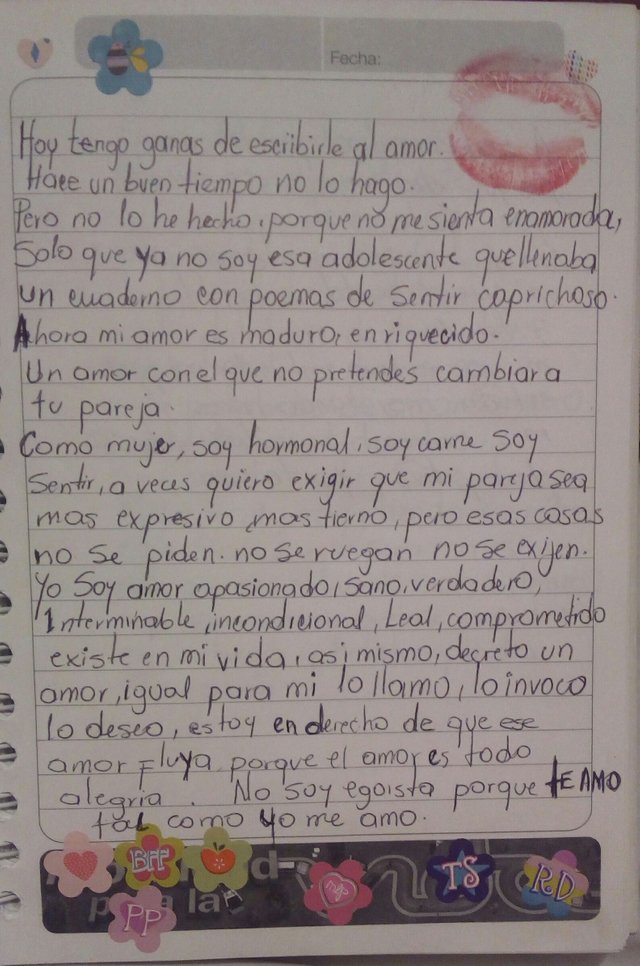 Fecha:
Hoy tengo ganas de escribirle al amor.
Hace un buen tiempo no lo hago.
Pero no lo he hecho, porque no me sienta enamorada,
Solo que ya no soy esa adolescente que llenaba
un cuaderno con poemas de sentir caprichoso.
Ahora mi amor es maduro, enriquecido.
Un amor con el que no pretendes cambiar a
tu pareja.
Como mujer, soy hormonal, soy carne soy
sentir, a veces quiero exigir que mi pareja sea
mas expresivo, mas tierno, pero esas cosas
no se piden. no se ruegan no se exijen.
Yo soy amor apasionado, sano, verdadero,
Interminable, incondicional, Leal, comprometido
existe en mi vida, asi mismo, decreto un
amor, igual para mi lo llamo, lo invoco
lo deseo, estoy en derecho de que ese
amor Fluya porque el amor es todo
alegria. No soy egoista porque tE AMO
tal como yo me amo.
BFF
TS
RD
PP
la